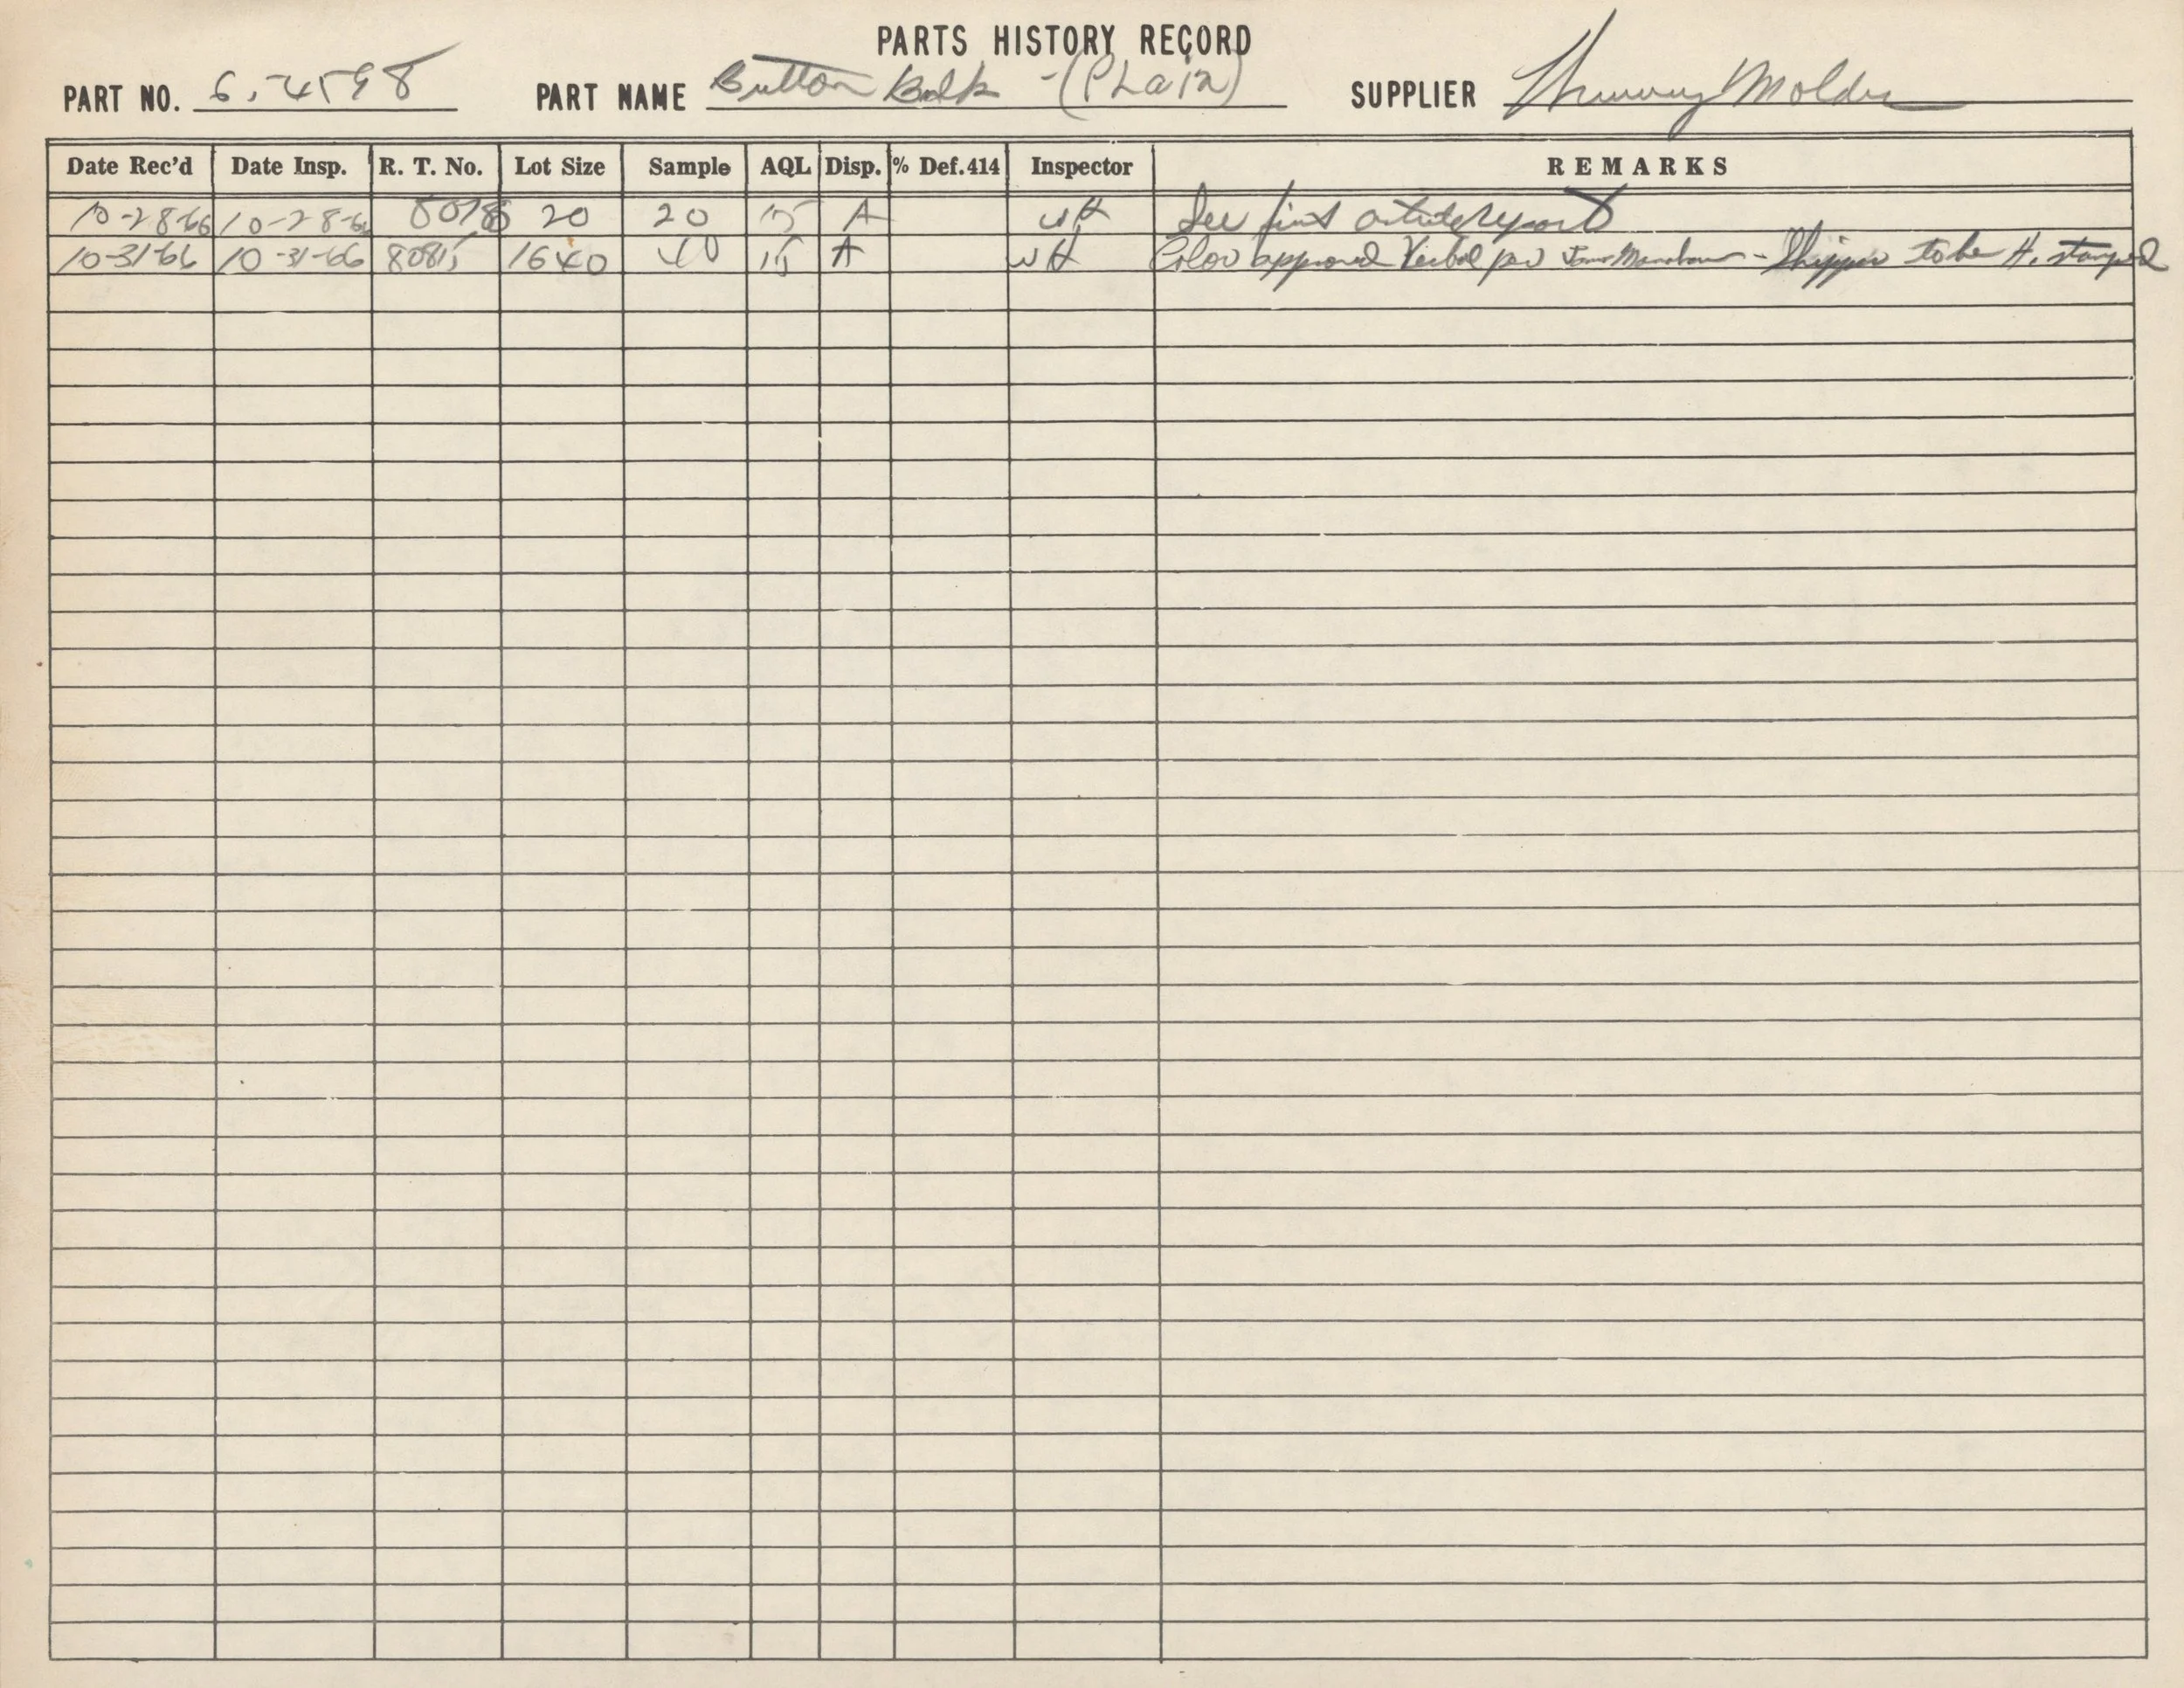 PARTS HISTORY RECORD
PART NO. 6.4598 PART NAME Button Bulk - (Plain) SUPPLIER Molder
Date Rec'd Date Insp. R. T. No. Lot Size Sample AQL Disp. % Def.414 Inspector REMARKS
10-28-66 10-28-66 20 20 15 A WH See first article report
10-31-66 10-31-66 8081 1640 40 15 A WH Color approved Verbal per - Shipper to be H. stamped